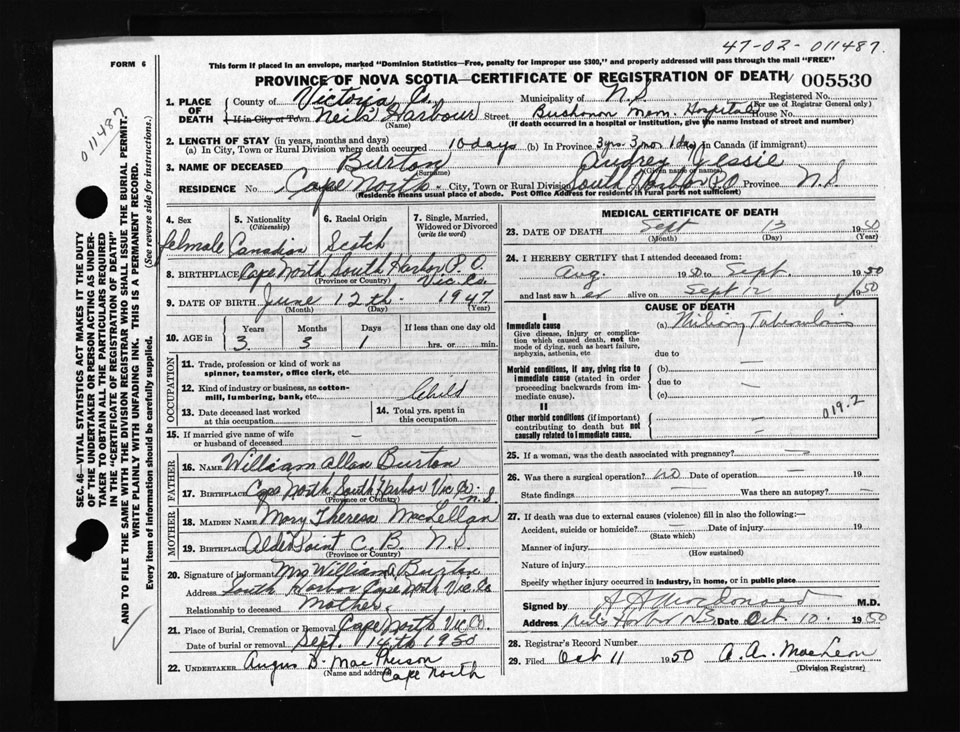 47-02-011487.
FORM 6
This form if placed in an envelope, marked "Dominion Statistics—Free, penalty for improper use $300," and properly addressed will pass through the mail "FREE"
PROVINCE OF NOVA SCOTIA—CERTIFICATE OF REGISTRATION OF DEATH 005530
1. PLACE OF DEATH County of Victoria Co. Municipality of N.S Registered No.
(For use of Registrar General only)
If in City or Town Neils Harbour Street Mem. Hospital House No.
(Name) (If death occurred in a hospital or institution, give the name instead of street and number)
2. LENGTH OF STAY (in years, months and days)
(a) In City, Town or Rural Division where death occurred 10 days (b) In Province 3 yrs 3 mo 1 day In Canada (if immigrant)
3. NAME OF DECEASED Burton Audrey Jessie
(Surname) (Given name or names)
RESIDENCE No. Cape North City, Town or Rural Division South Harbor P.O Province N.S
(Residence means usual place of abode. Post Office Address for residents in rural parts not sufficient)
4. Sex female
5. Nationality (Citizenship) Canadian
6. Racial Origin Scotch
7. Single, Married, Widowed or Divorced (write the word)
8. BIRTHPLACE Cape North South Harbor P.O. Vic. Co.
(Province or Country)
9. DATE OF BIRTH June 12th. 1947
(Month) (Day) (Year)
10. AGE in Years Months Days If less than one day old
3. 3 1 hrs. or min.
OCCUPATION
11. Trade, profession or kind of work as spinner, teamster, office clerk, etc.
12. Kind of industry or business, as cotton-mill, lumbering, bank, etc. Child
13. Date deceased last worked at this occupation
14. Total yrs. spent in this occupation
15. If married give name of wife or husband of deceased —
FATHER
16. NAME William Allan Burton
17. BIRTHPLACE Cape North South Harbor Vic Co. N.S
(Province or Country)
MOTHER
18. MAIDEN NAME Mary Theresa MacLellan
19. BIRTHPLACE Alder Point C.B. N.S.
(Province or Country)
20. Signature of informant Mrs William Burton
Address South Harbor Cape North Vic. Co
Relationship to deceased Mother.
21. Place of Burial, Cremation or Removal Cape North Vic Co.
Date of burial or removal Sept. 14th 1950
22. UNDERTAKER Angus D. MacPherson
(Name and address) Cape North
MEDICAL CERTIFICATE OF DEATH
23. DATE OF DEATH Sept 13 1950
(Month) (Day) (Year)
24. I HEREBY CERTIFY that I attended deceased from:
Aug. 1950 to Sept. 1950
and last saw her alive on Sept 12 1950
CAUSE OF DEATH
I
Immediate cause (a) Miliary Tuberculosis
Give disease, injury or complication which caused death, not the mode of dying, such as heart failure, asphyxia, asthenia, etc
due to
Morbid conditions, if any, giving rise to immediate cause (stated in order proceeding backwards from immediate cause).
(b) —
due to —
(c)
019.2
II
Other morbid conditions (if important) contributing to death but not causally related to immediate cause.
25. If a woman, was the death associated with pregnancy? —
26. Was there a surgical operation? NO Date of operation — 19
State findings Was there an autopsy?
27. If death was due to external causes (violence) fill in also the following:—
Accident, suicide or homicide? — Date of injury 19
(State which)
Manner of injury
(How sustained)
Nature of injury
Specify whether injury occurred in industry, in home, or in public place
Signed by M.D.
Address Neils Harbor N.S Date Oct 10. 1950
28. Registrar's Record Number
29. Filed Oct 11 1950 A. A. MacLeon
(Division Registrar)
011487
SEC. 46—VITAL STATISTICS ACT MAKES IT THE DUTY
OF THE UNDERTAKER OR PERSON ACTING AS UNDER-
TAKER TO OBTAIN ALL THE PARTICULARS REQUIRED
IN THE "CERTIFICATE OF REGISTRATION OF DEATH"
AND TO FILE THE SAME WITH THE DIVISION REGISTRAR WHO SHALL ISSUE THE BURIAL PERMIT.
WRITE PLAINLY WITH UNFADING INK. THIS IS A PERMANENT RECORD.
Every item of information should be carefully supplied. (See reverse side for instructions.)